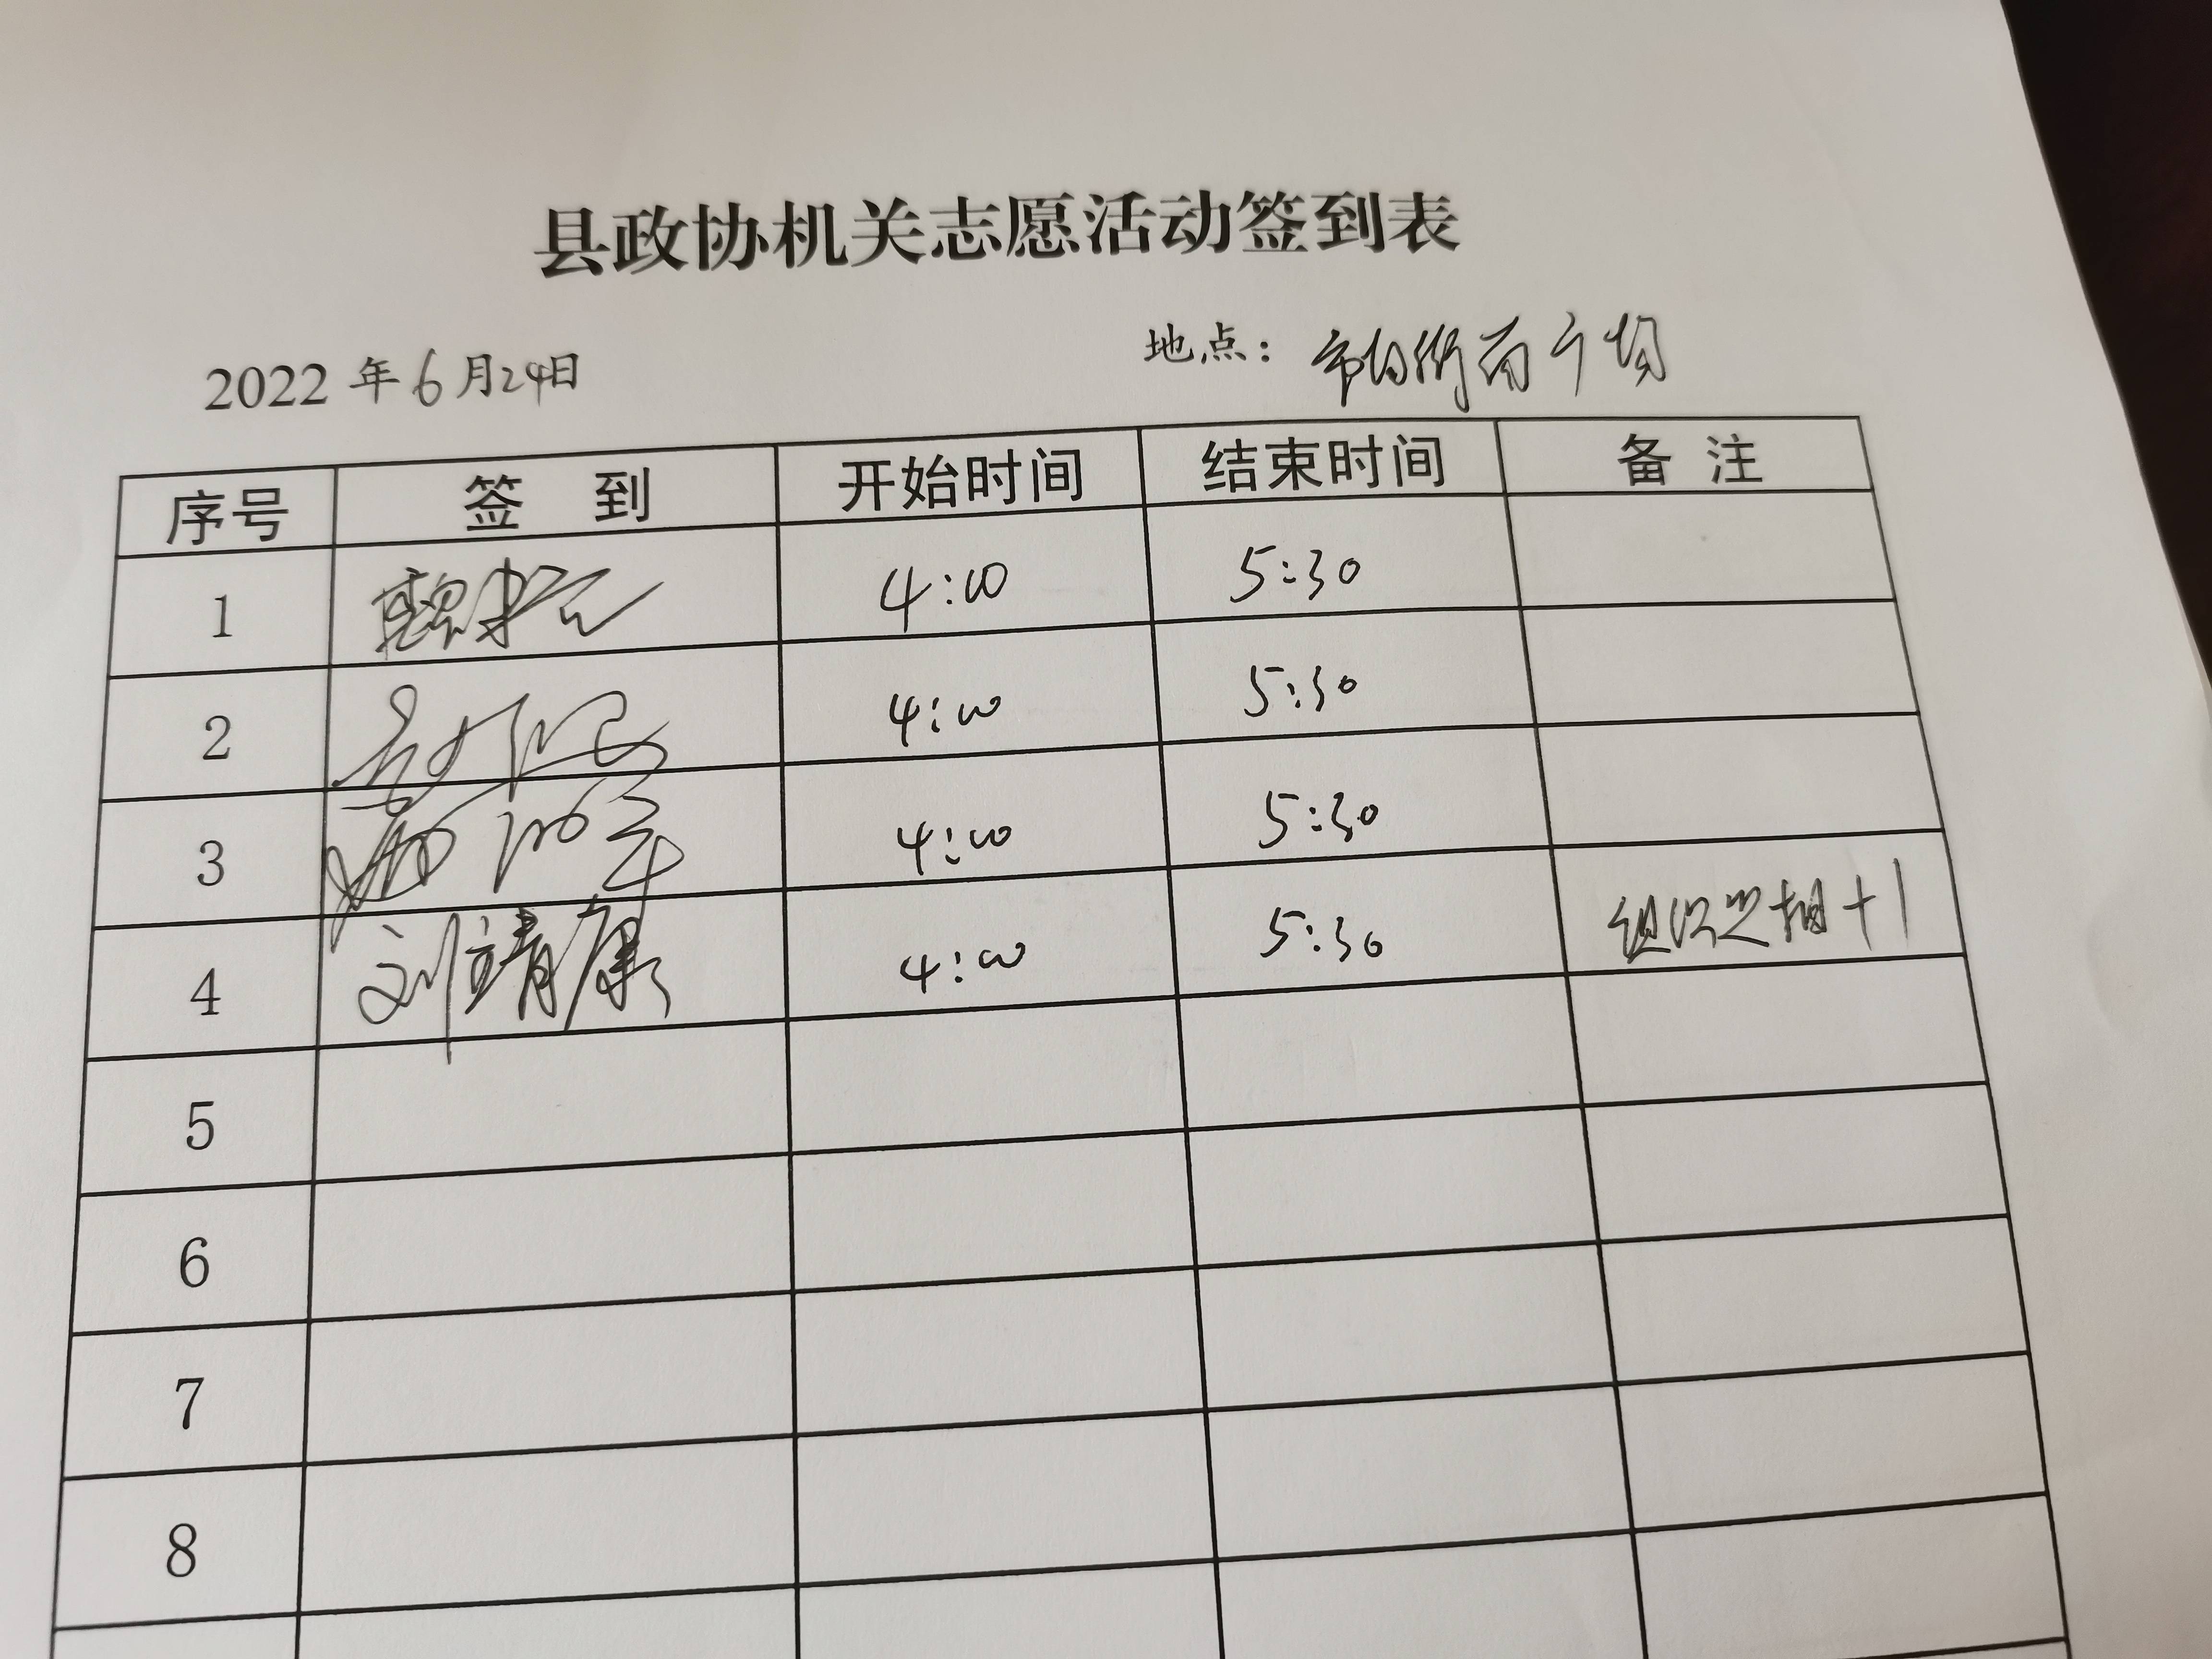 县政协机关志愿活动签到表
2022年6月24日 地点：
序号 签 到 开始时间 结束时间 备 注
1 4:00 5:30
2 4:00 5:30
3 4:00 5:30
4 刘靖康 4:00 5:30 组织 +1
5
6
7
8